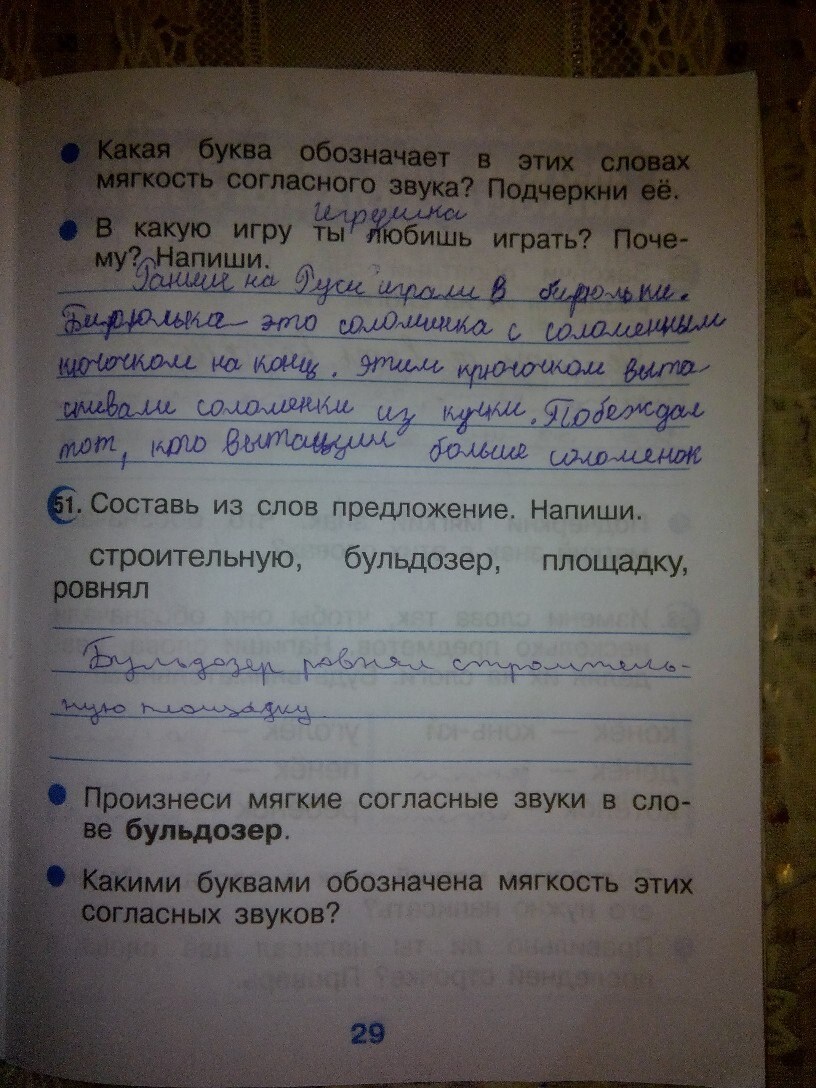 Какая буква обозначает в этих словах
мягкость согласного звука? Подчеркни её.
Игрушка
В какую игру ты любишь играть? Поче-
му? Напиши.
на Руси играли в бирюльки.
Бирюлька это соломинка с соломенным
на конц. Этим крючочком выта
скивали соломенки из кучки. Побеждал
тот, кто вытащил больше соломенок
51. Составь из слов предложение. Напиши.
строительную, бульдозер, площадку,
ровнял
Бульдозер ровнял строитель-
ную площадку.
Произнеси мягкие согласные звуки в сло-
ве бульдозер.
Какими буквами обозначена мягкость этих
согласных звуков?
29